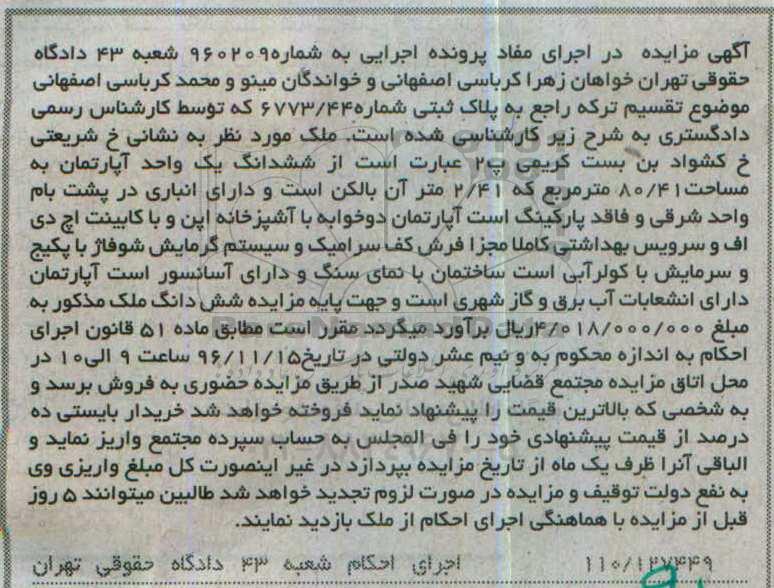 آگهی مزایده در اجرای مفاد پرونده اجرایی به شماره ۹۶۰۲۰۹ شعبه ۴۳ دادگاه
حقوقی تهران خواهان زهرا کرباسی اصفهانی و خواندگان مینو و محمد کرباسی اصفهانی
موضوع تقسیم ترکه راجع به پلاک ثبتی شماره ۶۷۷۳/۴۴ که توسط کارشناس رسمی
دادگستری به شرح زیر کارشناسی شده است. ملک مورد نظر به نشانی خ شریعتی
خ کشواد بن بست کریمی پ۲ عبارت است از ششدانگ یک واحد آپارتمان به
مساحت ۸۰/۴۱ مترمربع که ۲/۴۱ متر آن بالکن است و دارای انباری در پشت بام
واحد شرقی و فاقد پارکینگ است آپارتمان دوخوابه با آشپزخانه اپن و با کابینت اچ دی
اف و سرویس بهداشتی کاملا مجزا فرش کف سرامیک و سیستم گرمایش شوفاژ با پکیج
و سرمایش با کولرآبی است ساختمان با نمای سنگ و دارای آسانسور است آپارتمان
دارای انشعابات آب برق و گاز شهری است و جهت پایه مزایده شش دانگ ملک مذکور به
مبلغ ۴/۰۱۸/۰۰۰/۰۰۰ریال برآورد میگردد مقرر است مطابق ماده ۵۱ قانون اجرای
احکام به اندازه محکوم به و نیم عشر دولتی در تاریخ ۹۶/۱۱/۱۵ ساعت ۹ الی ۱۰ در
محل اتاق مزایده مجتمع قضایی شهید صدر از طریق مزایده حضوری به فروش برسد و
به شخصی که بالاترین قیمت را پیشنهاد نماید فروخته خواهد شد خریدار بایستی ده
درصد از قیمت پیشنهادی خود را فی المجلس به حساب سپرده مجتمع واریز نماید و
الباقی آنرا ظرف یک ماه از تاریخ مزایده بپردازد در غیر اینصورت کل مبلغ واریزی وی
به نفع دولت توقیف و مزایده در صورت لزوم تجدید خواهد شد طالبین میتوانند ۵ روز
قبل از مزایده با هماهنگی اجرای احکام از ملک بازدید نمایند.
۱۱۰/۱۲۷۴۴۹ اجرای احکام شعبه ۴۳ دادگاه حقوقی تهران